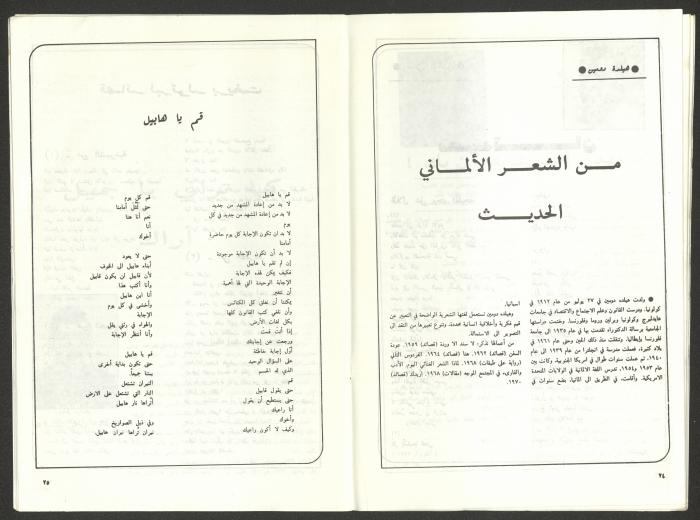 ● هيلدة دومين ●
من الشعر الألماني
الحديث
● ولدت هيلده دومين في ٢٧ يوليو من عام ١٩١٢ في
كولونيا. ودرست القانون وعلم الاجتماع والاقتصاد في جامعات
هايدلبرج وكولونيا وبرلين وروما وفلورنسا. وختمت دراستها
الجامعية برسالة الدكتوراه تقدمت بها في عام ١٩٣٥ الى جامعة
فلورنسا وإيطاليا. وتنقلت منذ ذلك الحين وحتى عام ١٩٦١ في
بلاد كثيرة، فعملت مدرسة في انجلترا من عام ١٩٣٩ الى عام
١٩٤٠، ثم عملت سنوات طوال في امريكا الجنوبية. وكانت بين
عام ١٩٥٣ و١٩٥٤ تدرس اللغة الالمانية في الولايات المتحدة
الامريكية. وأقامت، في الطريق الى المانيا، بضع سنوات في
اسبانيا.
وهيلده دومين تستعمل لغتها الشعرية الواضحة في التعبير عن
قيم فكرية وأخلاقية انسانية محددة. وتنوع تعبيرها من النقد الى
التصوير الى الاستبدال.
من أعمالها نذكر: لا سند الا وردة (قصائد) ١٩٥٩. عودة
السفن (قصائد) ١٩٦٢. هنا (قصائد) ١٩٦٤. الفردوس الثاني
(رواية على طبقات) ١٩٦٨. لماذا الشعر الغنائي اليوم الأدب
والقارىء في المجتمع الموجه (مقالات) ١٩٦٨. أريدك (قصائد)
١٩٧٠.
٢٤
قم يا هابيل
قم يا هابيل
لا بد من إعادة المشهد من جديد
لا بد من إعادة المشهد من جديد في كل
يوم
لا بد ان تكون الإجابة كل يوم حاضرة
أمامنا
لا بد أن تكون الإجابة موجودة
إن لم تقم يا هابيل
فكيف يمكن لهذه الإجابة
الإجابة الوحيدة التي لها أهمية
أن تتغير
يمكننا أن نغلق كل الكنائس
وأن نلغي كتب القانون كلها
بكل لغات الأرض
إذا أنت قمت
ورجعت عن إجابتك
أول إجابة خاطئة
على السؤال الوحيد
الذي له الحسم
قم
حتى يقول قابيل
حتى يستطيع أن يقول
أنا راعيك
وأخوك
وكيف لا أكون راعيك
قم كل يوم
حتى تمثل أمامنا
نعم أنا هنا
أنا
أخوك
حتى لا يعود
أبناء هابيل الى الخوف
لأن قابيل لن يكون قابيل
وأنا أكتب هذا
أنا ابن هابيل
وأخشى في كل يوم
الإجابة
والهواء في رئتي يقل
وأنا أنتظر الإجابة
قم يا هابيل
حتى تكون بداية أخرى
بيننا جميعاً.
النيران تشتعل
النار التي تشتعل على الارض
أتراها نار هابيل
وفي ذيل الصواريخ
نيران تراها نيران هابيل.
٢٥